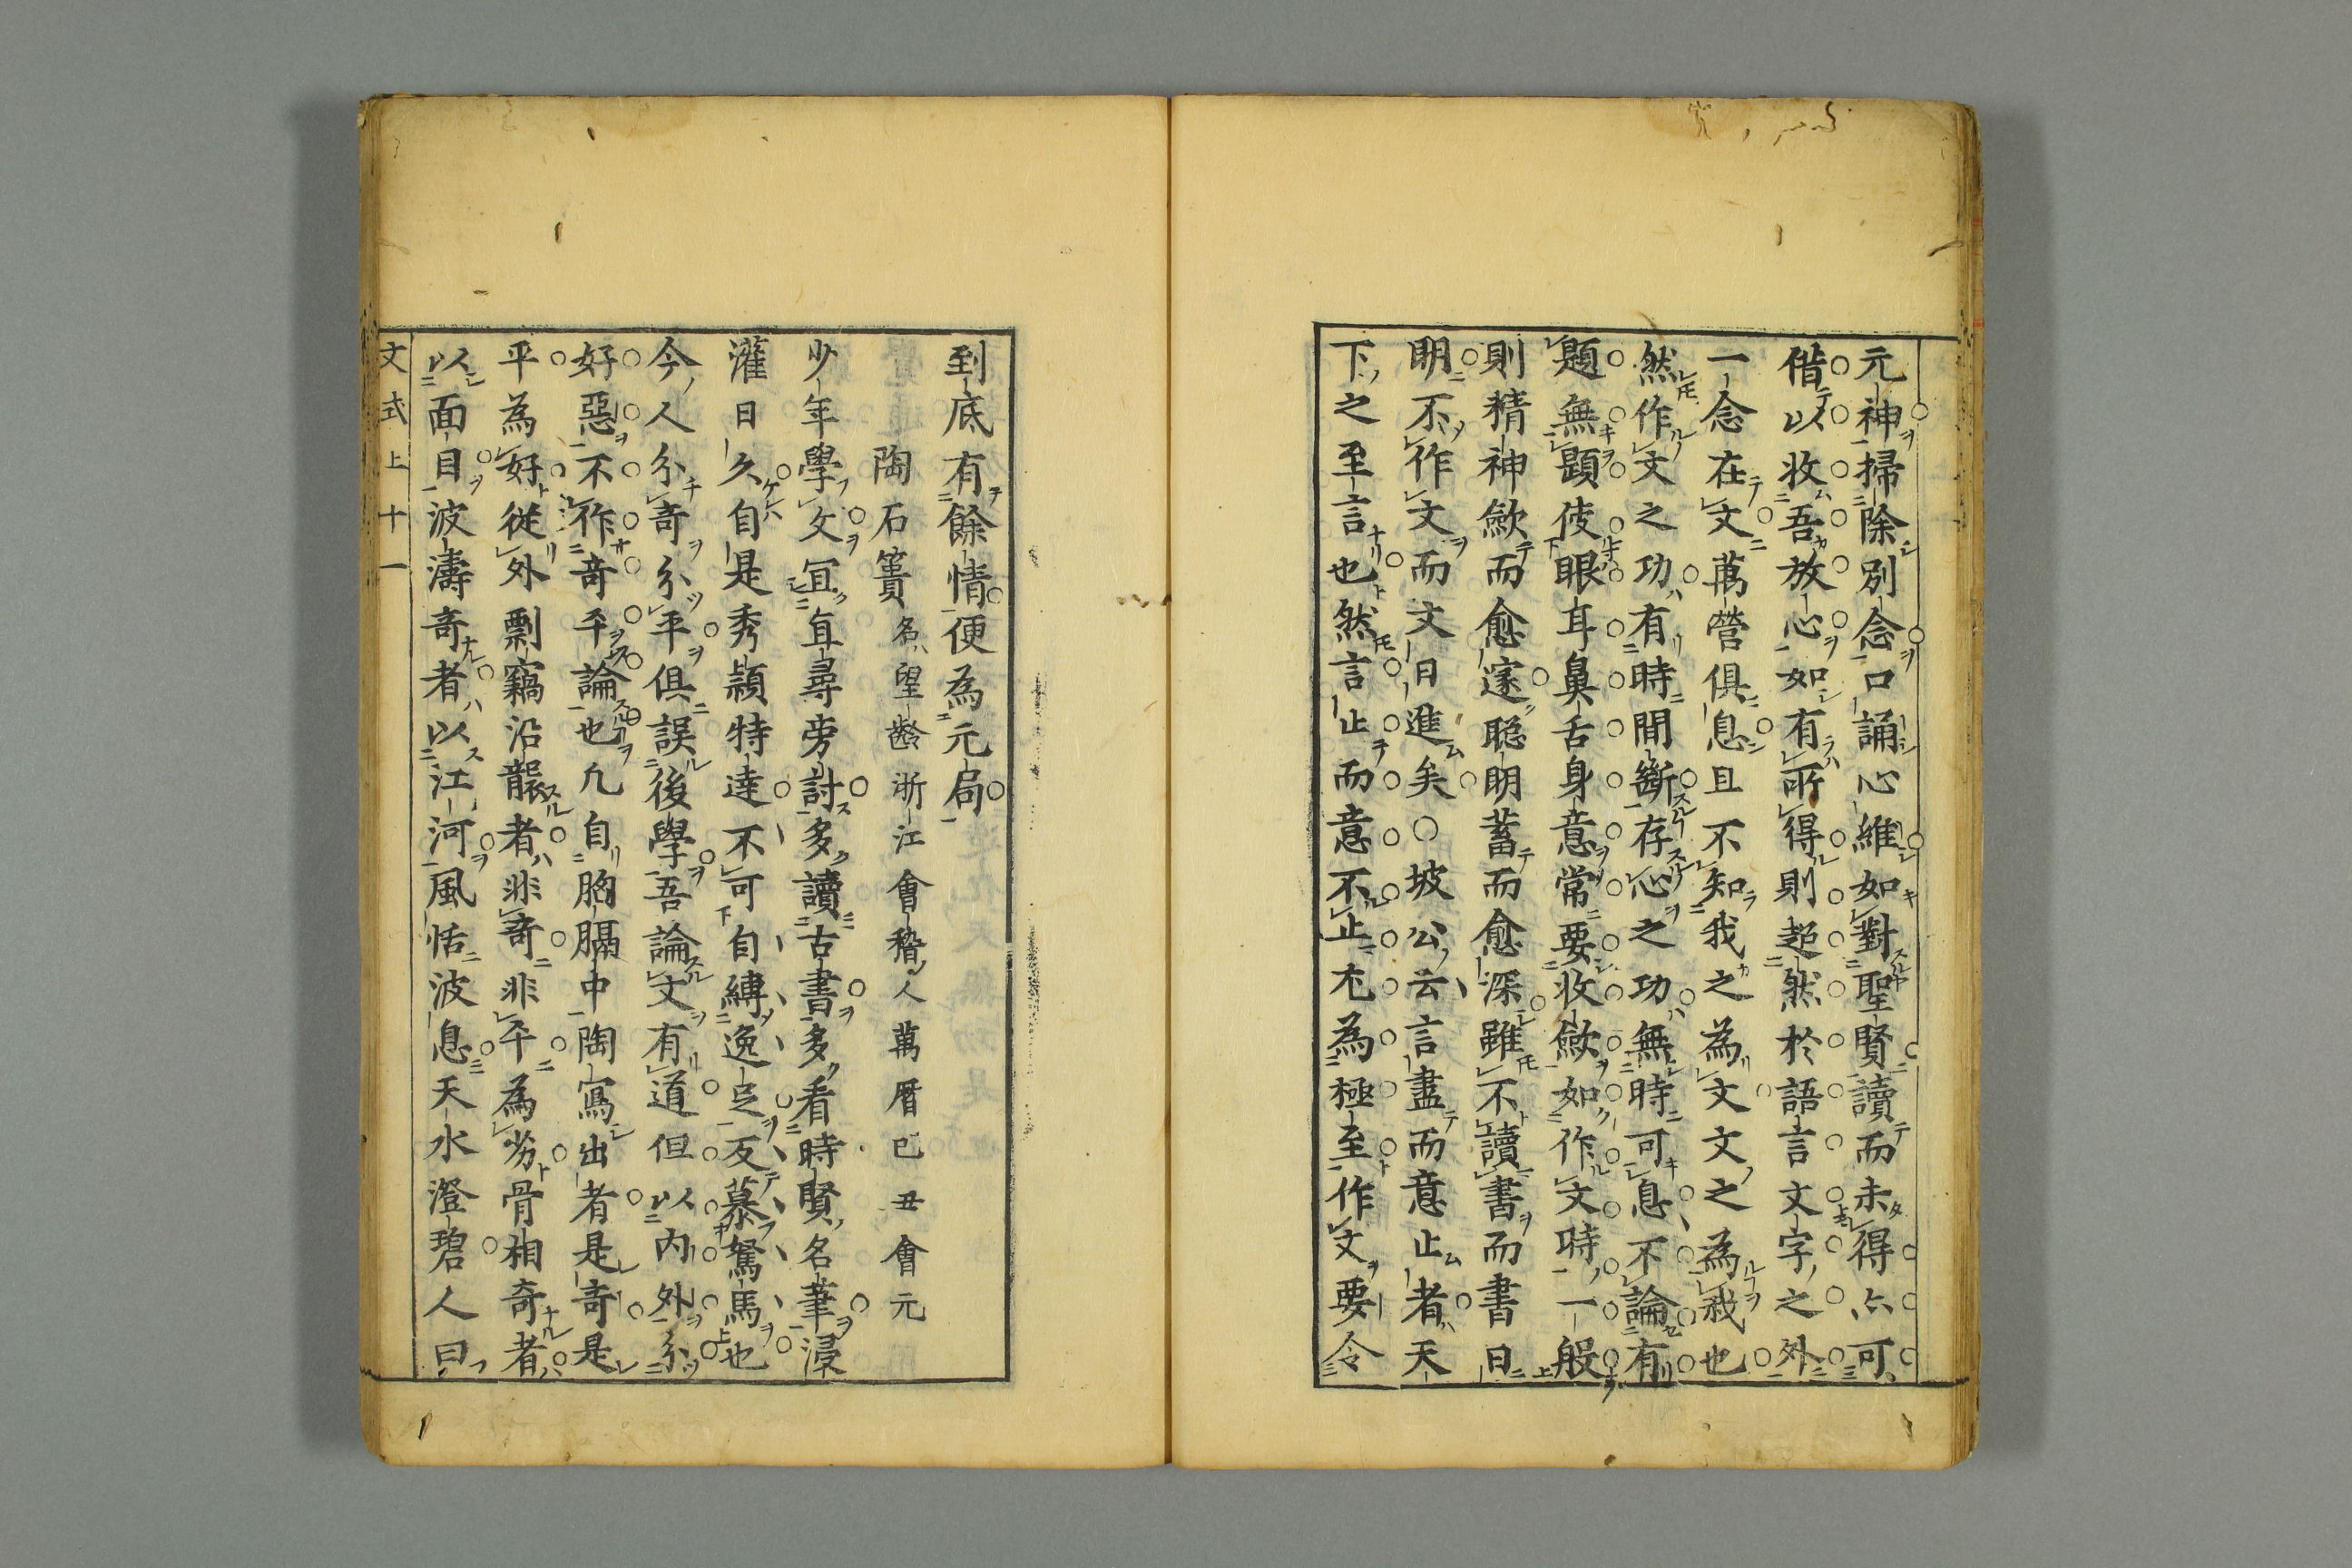 元神掃除別念口誦心維如對聖賢讀而未得亦可
偕以收吾放心如有所得則超然於語言文字之外
一念在文萬營俱息且不知我之為文文之為我也
然作文之功有時間斷存心之功無時可息不論有
題無題使眼耳鼻舌身意常要收斂如作文時一般
則精神斂而愈邃聰明蓄而愈深雖不讀書而書日
明不作文而文日進矣○坡公云言盡而意止者天
下之至言也然言止而意不止尤為極至作文要令
到底有餘情便為元局
陶石簣名望齡浙江會稽人萬曆巳丑會元
少年學文冝耳尋旁討多讀古書多看時賢名筆浸
灌日久自是秀頴特達不可自縛逸足反慕駑馬也
今人分奇分平俱誤後學吾論文有道但以內外分
好惡不作奇平論也凢自胸膈中陶寫出者是奇是
平為好從外剽竊沿襲者非奇非平為劣骨相奇者
以面目波濤奇者以江河風恬波息天水澄碧人曰
文式上十一